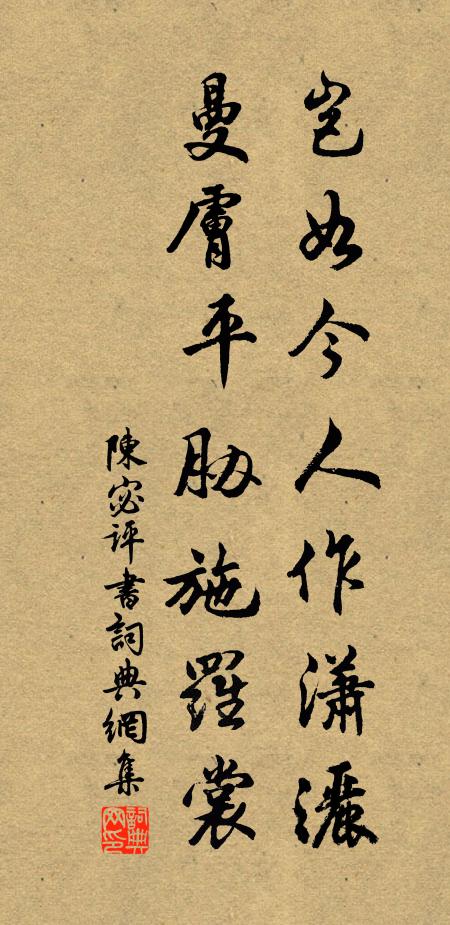 豈如今人作瀟灑
曼膚平肋施羅裳
陳宓評書詞典網集
詞典網印